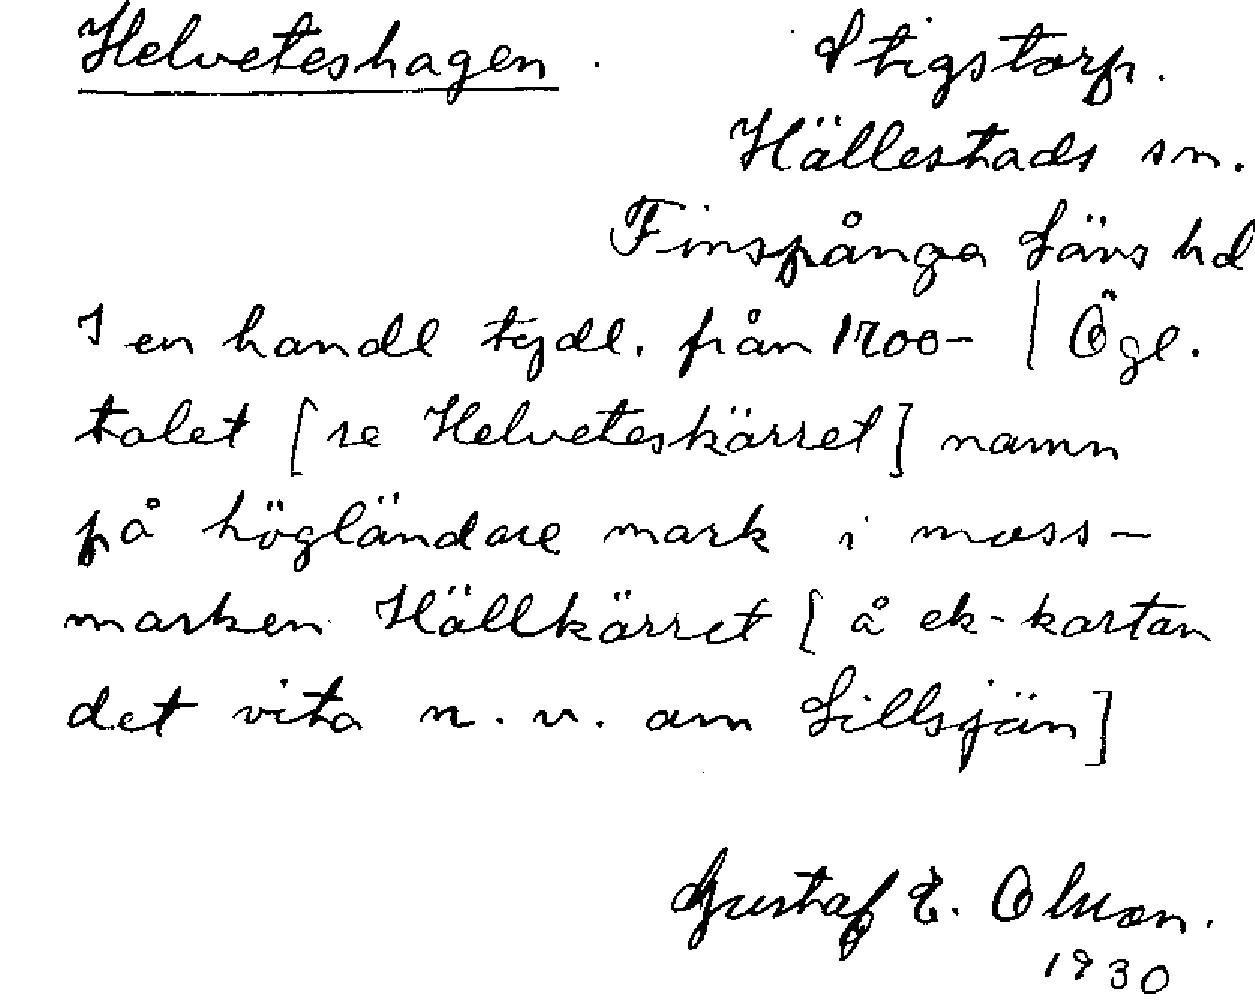 Helveteshagen. Stigstorp.
Hällestads sn.
Finspånga Läns hd
I en handl tydl. från 1700- | Ögl.
talet [se Helveteskärret] namn
på högländare mark i moss-
marken Hällkärret [å ek-kartan
det vita n.v. om Lillsjön]
Gustaf E. Olsson.
1930